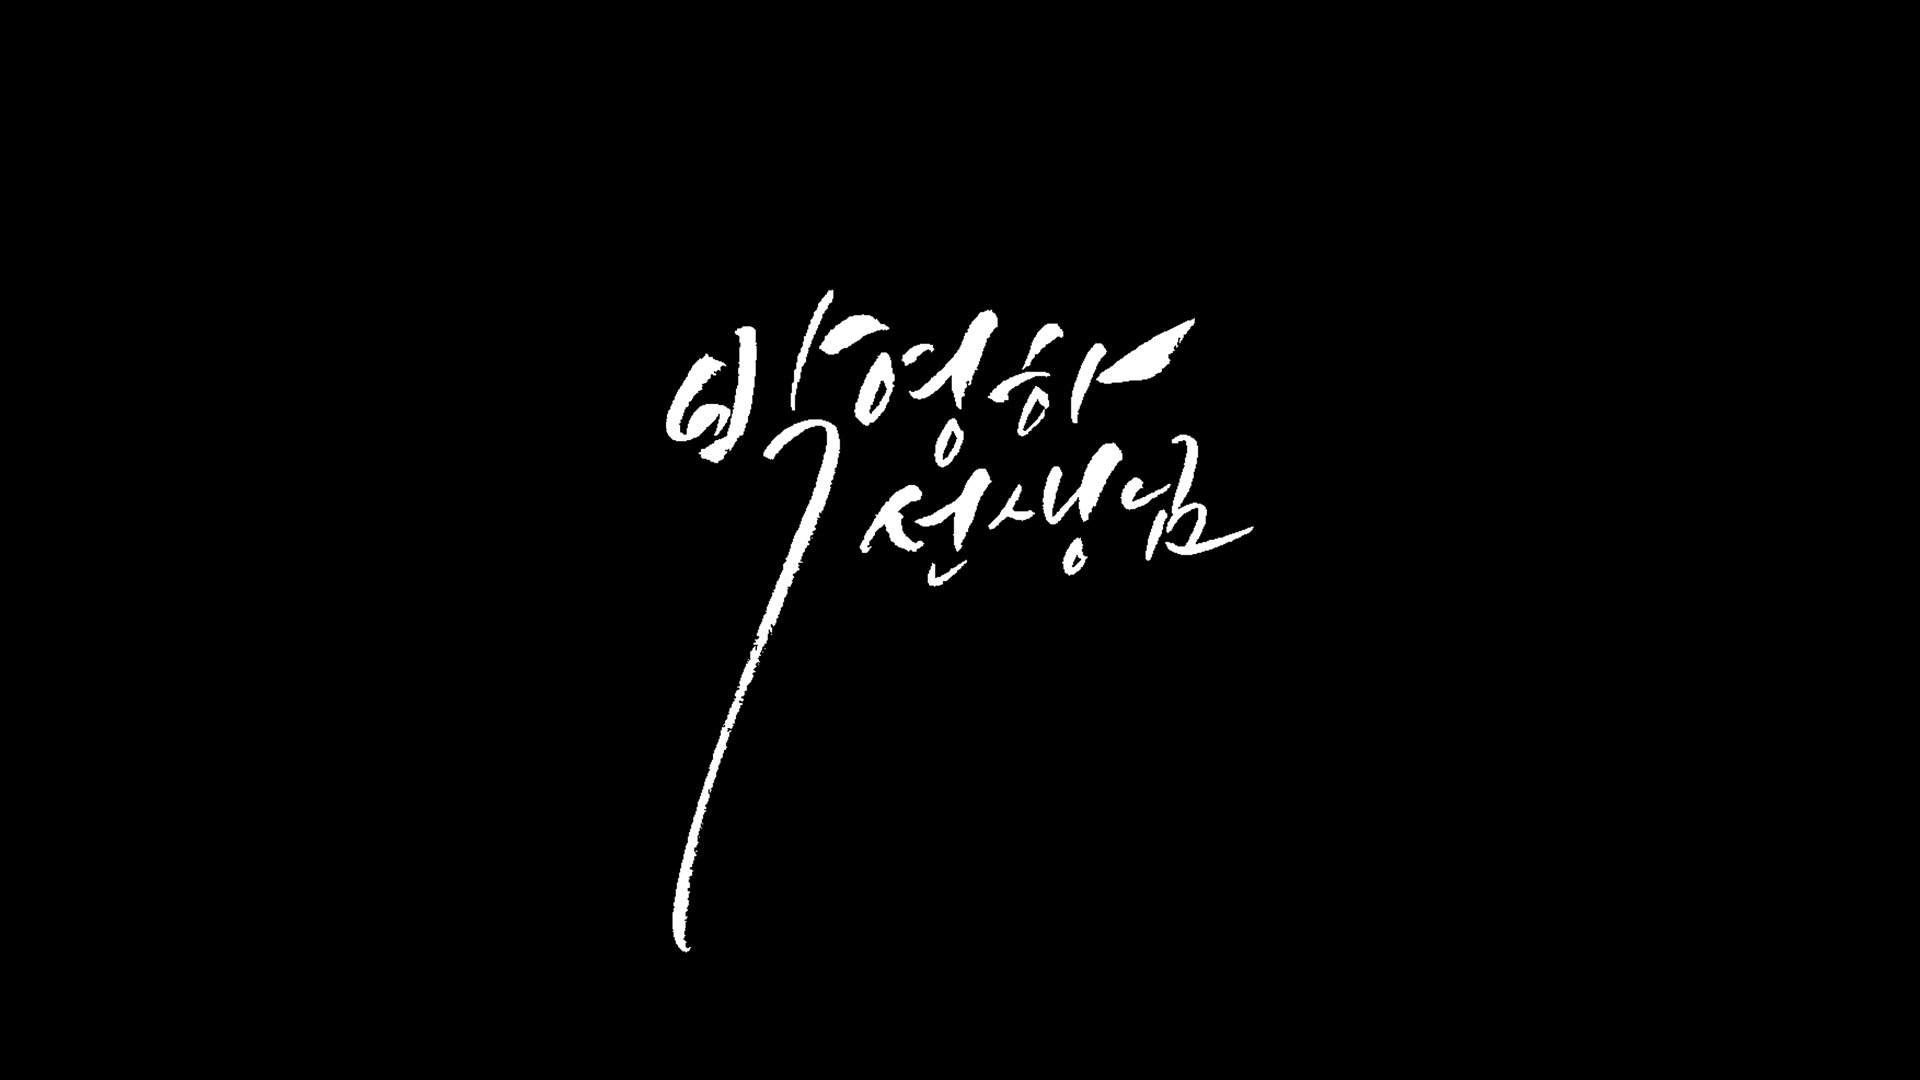 박영하
선생님